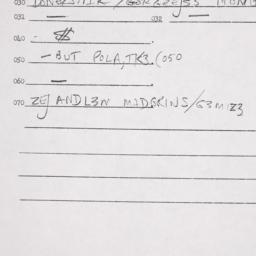 030
031 — 032 —
040 -
050 - BUT POLA, TK3. (050
060 —
070 ZEJ ANDL3N MIDGRINS/G3MIZ3